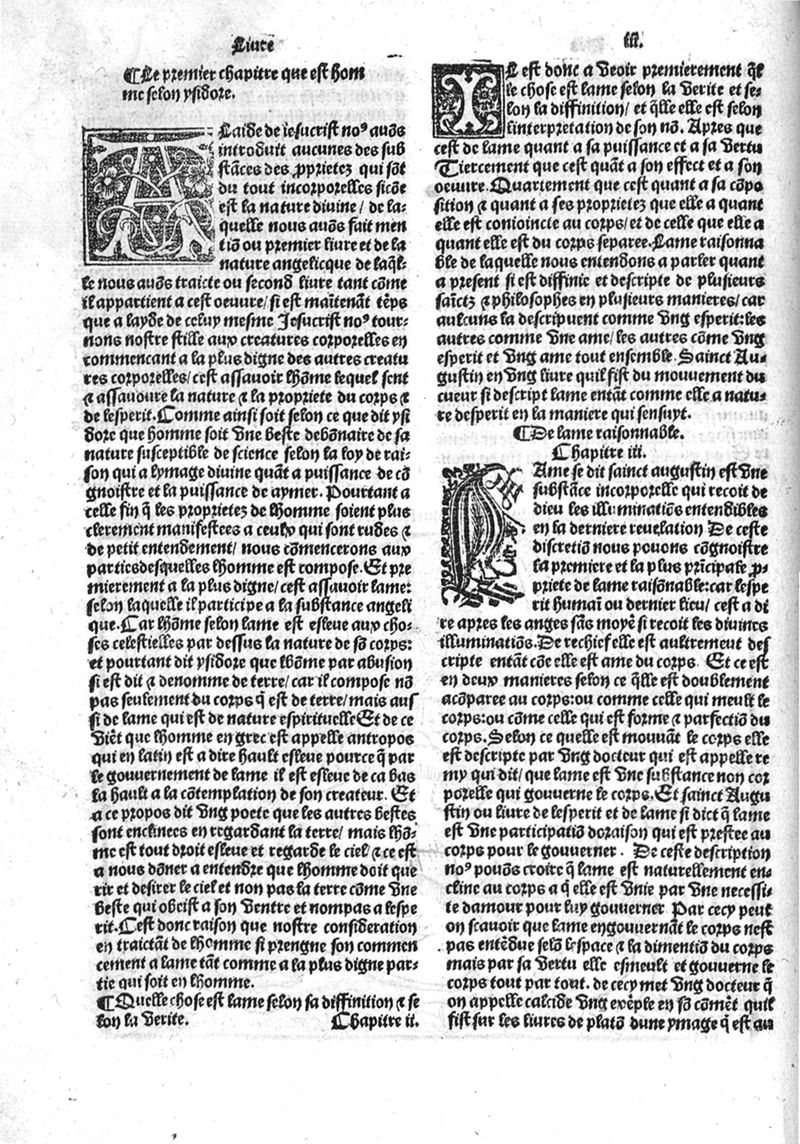 Liure
iii.
¶Le premier chapitre que est hom
me selon ysidore.
A Laide de iesucrist noꝰ auōs
introduit aucunes des sub
stāces des ꝓprietez qui sōt
du tout incorporelles sicōe
est la nature diuine/ de la-
quelle nous auōs fait men
tiō ou premier liure et de la
nature angelicque de laq̄l-
le nous auōs traicte ou second liure tant cōme
il appartient a cest oeuure/ si est maītenāt tēps
que a layde de celuy mesme Jesucrist noꝰ tour-
nons nostre stille aux creatures corporelles en
commencant a la plus digne des autres creatu
res corporelles/ cest assauoir lhōme lequel sent
⁊ assauoure la nature ⁊ la propriete du corps ⁊
de lesperit. Comme ainsi soit selon ce que dit ysi
dore que homme soit vne beste debōnaire de sa
nature susceptible de science selon la loy de rai-
son qui a lymage diuine quāt a puissance de cō
gnoistre et la puissance de aymer. Pourtant a
celle fin q̄ les proprietez de lhomme soient plus
clerement manifestees a ceulx qui sont rudes ⁊
de petit entendement/ nous cōmencerons aux
parties desquelles lhomme est compose. Et pre
mierement a la plus digne/ cest assauoir lame:
selon laquelle il participe a la substance angeli
que. Car lhōme selon lame est esleue aux cho-
ses celestielles par dessus la nature de sō corps:
et pourtant dit ysidore que lhōme par abusion
si est dit ⁊ denomme de terre/ car il compose nō
pas seulement du corps q̄ est de terre/ mais aus
si de lame qui est de nature espirituelle Et de ce
viēt que lhomme en grec est appelle antropos
qui en latin est a dire hault esleue pource q̄ par
le gouuernement de lame il est esleue de ca bas
la hault a la cōtemplation de son createur. Et
a ce propos dit vng poete que les autres bestes
sont enclinees en regardant la terre/ mais lhō-
me est tout droit esleue et regarde le ciel/ ⁊ ce est
a nous dōner a entendre que lhomme doit que
rir et desirer le ciel et non pas la terre cōme vne
beste qui obeist a son ventre et nompas a lespe
rit. Cest donc raison que nostre consideration
en traictāt de lhomme si prengne son commen
cement a lame tāt comme a la plus digne par-
tie qui soit en lhomme.
¶Quelle chose est lame selon sa diffinition ⁊ se
lon la verite. Chapitre ii.
I L est donc a veoir premierement q̄l
le chose est lame selon la verite et se-
lon la diffinition/ et q̄lle elle est selon
linterpretation de son nō. Apres que
cest de lame quant a sa puissance et a sa vertu
Tiercement que cest quāt a son effect et a son
oeuure. Quartement que cest quant a sa cōpo
sition ⁊ quant a ses proprietez que elle a quant
elle est conioincte au corps/ et de celle que elle a
quant elle est du corps separee. Lame raisonna
ble de laquelle nous entendons a parler quant
a present si est diffinie et descripte de plusieurs
saīctz ⁊ philosophes en plusieurs manieres/ car
aulcuns la descripuent comme vng esperit: les
autres comme vne ame/ les autres cōme vng
esperit et vng ame tout ensemble. Sainct Au-
gustin en vng liure quil fist du mouuement du
cueur si descript lame entāt comme elle a natu-
re desperit en la maniere qui sensuyt.
¶De lame raisonnable.
Chapitre iii.
L Ame se dit sainct augustin est vne
substāce incorporelle qui recoit de
dieu les illuminatiōs entendibles
en la derniere reuelation De ceste
discretiō nous pouōs cōgnoistre
la premiere et la plus prīcipale ꝓ-
priete de lame raisōnable: car lespe
rit humaī ou dernier lieu/ cest a di
re apres les anges sās moyē si recoit les diuines
illuminatiōs. De rechief elle est aultrement des
cripte entāt cōe elle est ame du corps. Et ce est
en deux manieres selon ce q̄lle est doublement
acōparee au corps: ou comme celle qui meult le
corps: ou cōme celle qui est forme ⁊ parfectiō du
corps. Selon ce quelle est mouuāt le corps elle
est descripte par vng docteur qui est appelle re
my qui dit/ que lame est vne substance non cor
porelle qui gouuerne le corps. Et sainct Augu
stin ou liure de lesperit et de lame si dict q̄ lame
est vne participatiō doraison qui est prestee au
corps pour le gouuerner. De ceste description
noꝰ pouōs croire q̄ lame est naturellement en-
cline au corps a q̄ elle est vnie par vne necessi-
te damour pour luy gouuerner Par cecy peult
on scauoir que lame en gouuernāt le corps nest
pas entēdue selō lespace ⁊ la dimentiō du corps
mais par sa vertu elle esmeult et gouuerne le
corps tout par tout. de cecy met vng docteur q̄
on appelle calcide vng exēple en sō cōmēt quil
fist sur les liures de platō dune ymage q̄ est au